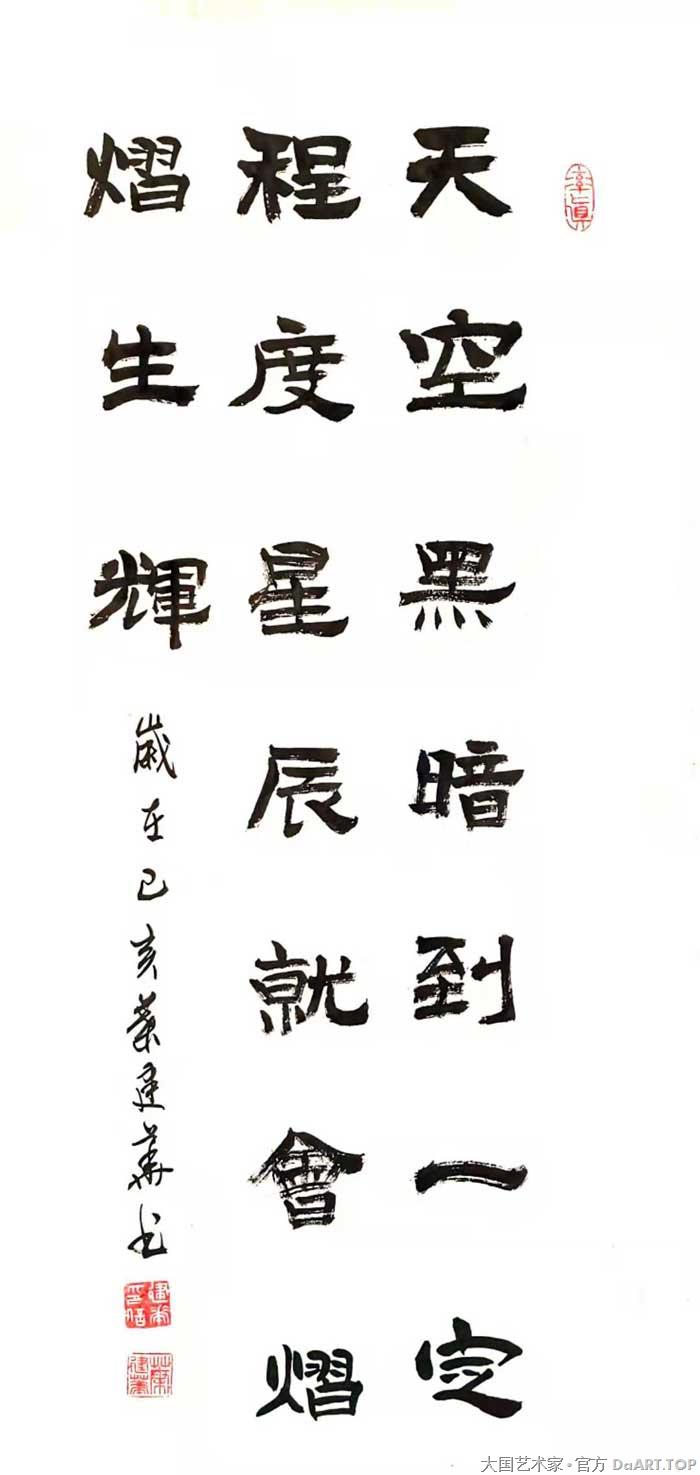 率真
天空黑暗到一定
程度星辰就會熠
熠生輝
歲在己亥 建華书
大国艺术家·官方 DaART.TOP